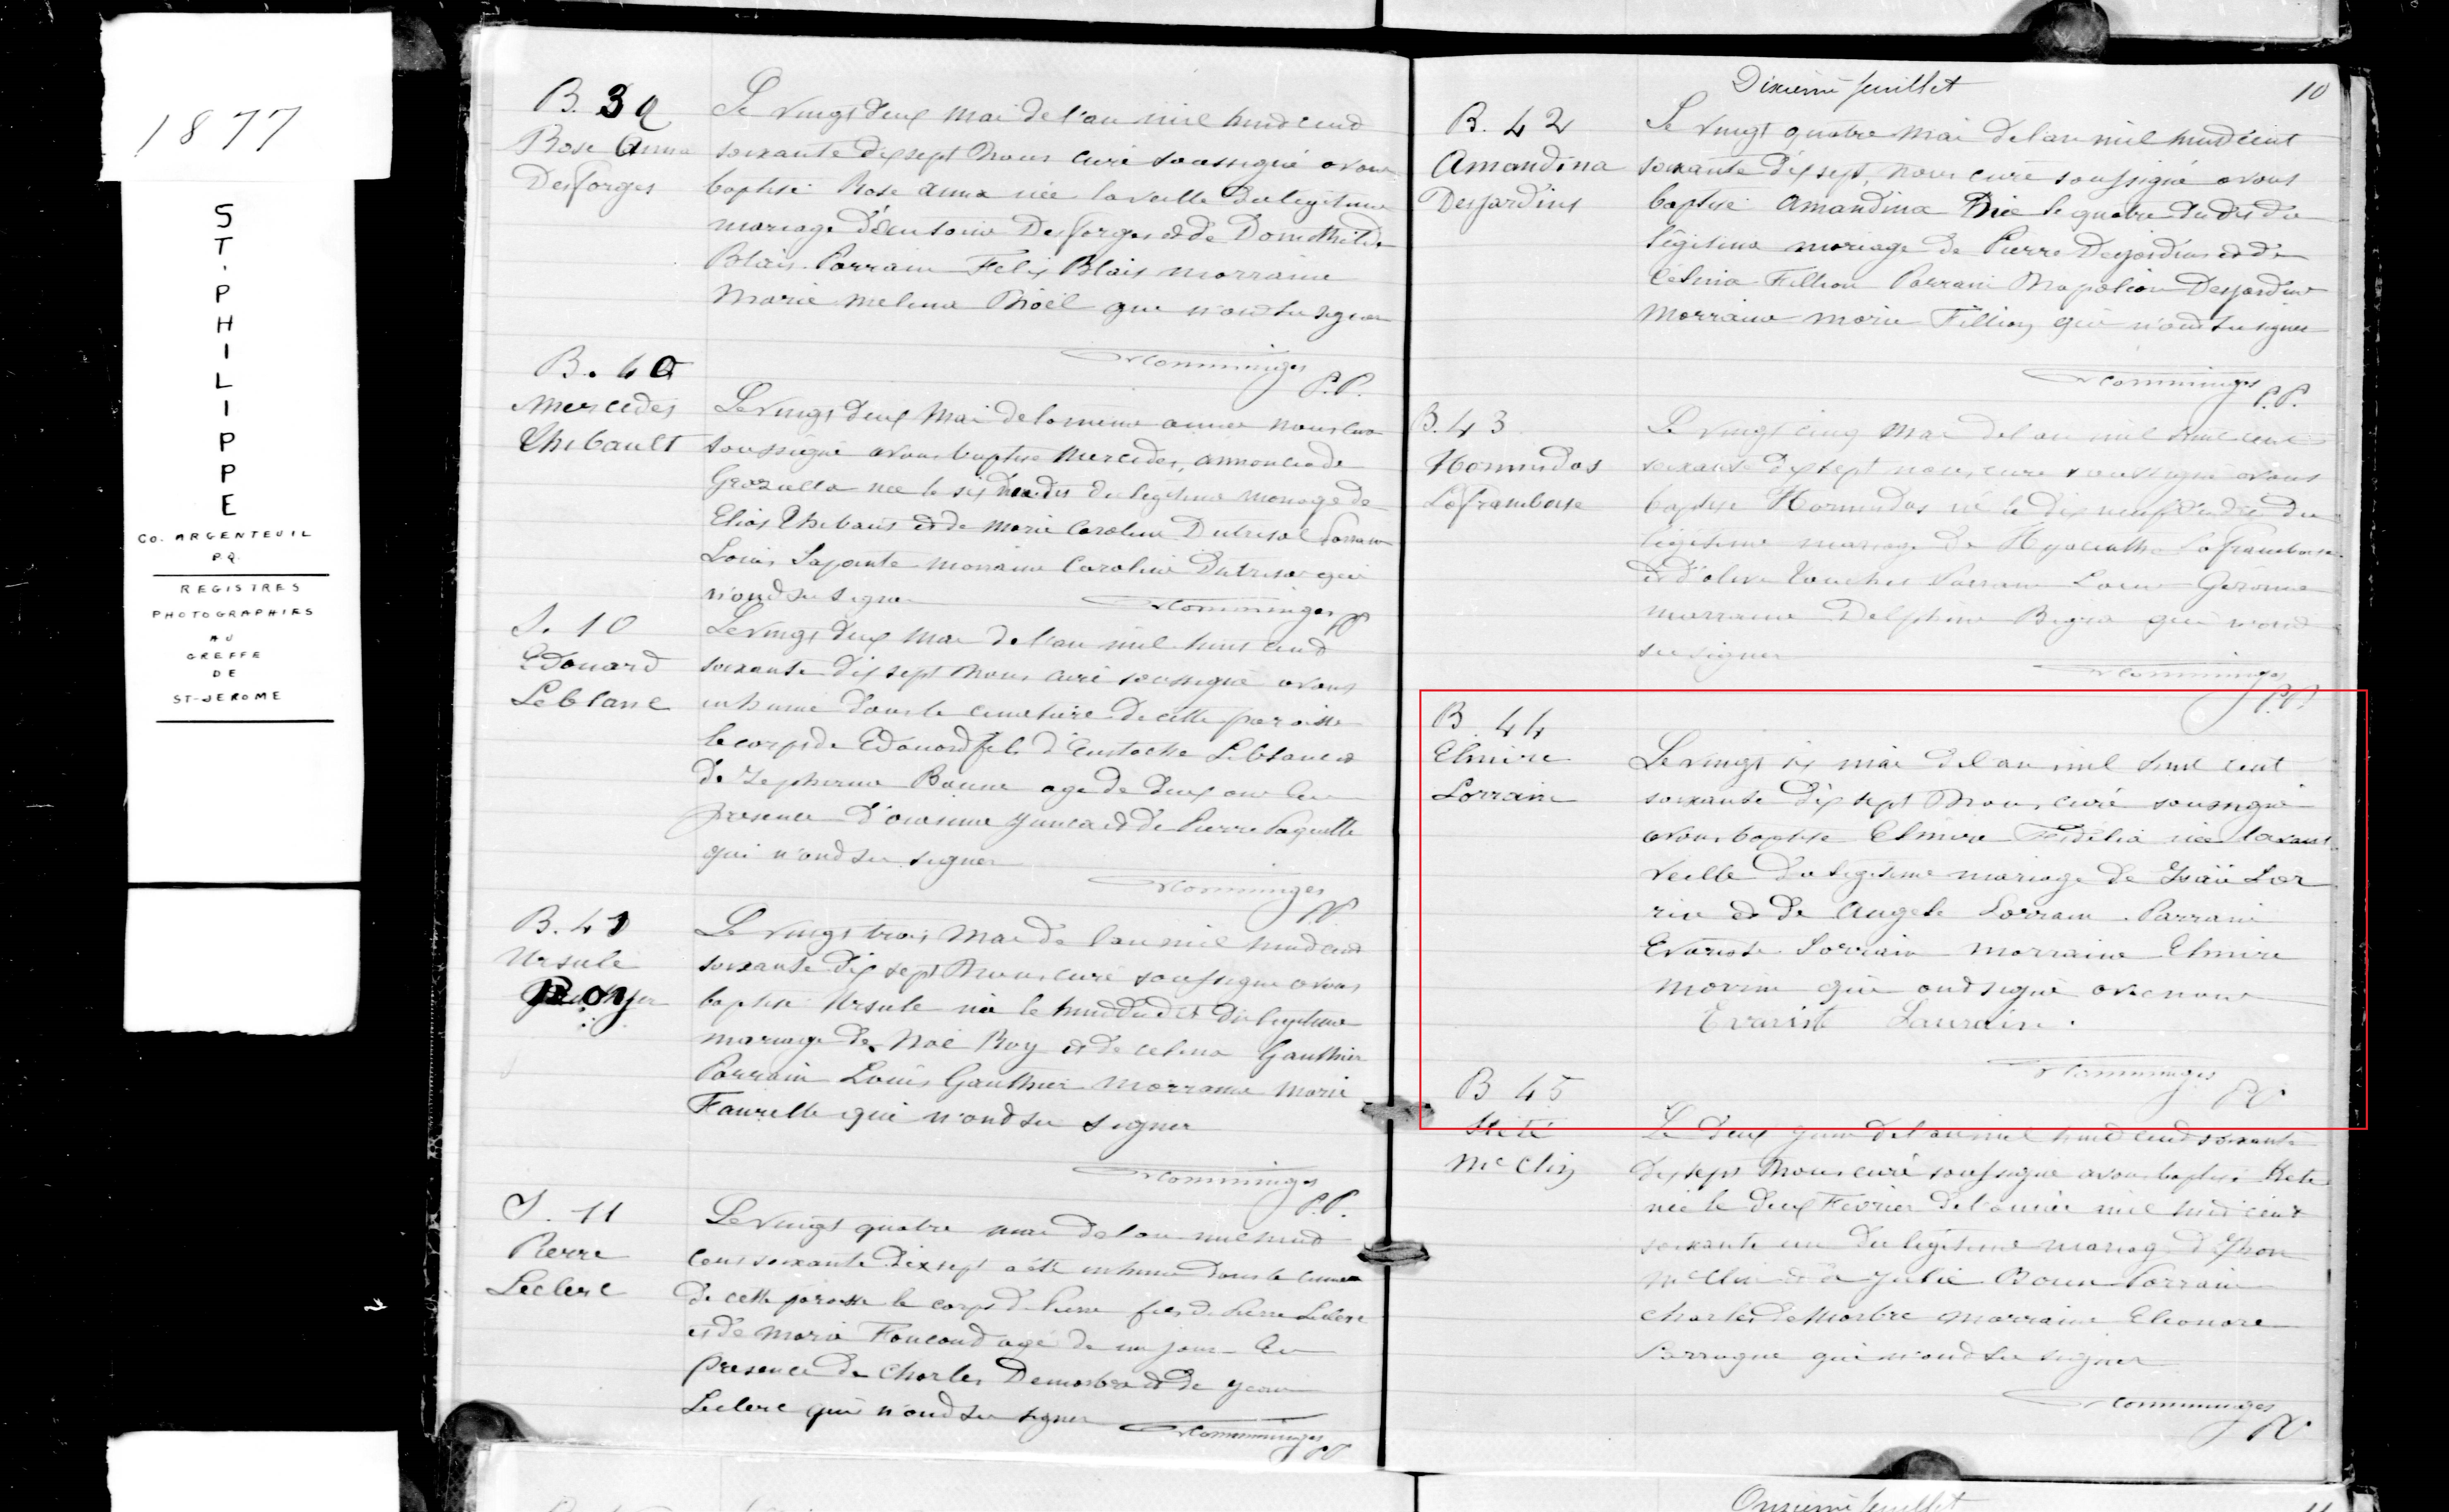 1877
ST. PHILIPPE
CO. ARGENTEUIL
P.Q.
REGISTRES
PHOTOGRAPHIES
AU
GREFFE
DE
ST-JEROME
B. 39
Rose Anna
Desforges
Le vingt deux mai de l'an mil huit cent
soixante dix sept nous curé soussigné avons
baptisé Rose Anna née la veille du légitime
mariage d'Antoine Desforges et de Domithilde
Blais. Parrain Felix Blais marraine
Marie Melina Noël qui n'ont su signer
Comminges
P.P.
B. 40
Mercedes
Thibault
Le vingt deux Mai de la même année nous curé
soussigné avons baptisé Mercedes,
née le six du légitime mariage de
Elias Thibault et de Marie Caroline Dutrisac Parrain
Louis Lapointe marraine Caroline Dutrisac qui
n'ont su signer
Comminges PP
S. 10
Edouard
Leblanc
Le vingt deux mai de l'an mil huit cent
soixante dix sept nous curé soussigné avons
inhumé dans le cimetière de cette paroisse
le corps de Edouard fils d'Eustache Leblanc et
de Zepherina agé de deux ans En
presence d'Onesime et de Pierre Paquette
qui n'ont su signer
Comminges
PP
B. 41
Ursule
Roy
Le vingt trois Mai de l'an mil huit cent
soixante dix sept Nous curé soussigné avons
baptisé Ursule née le huit du dit du légitime
mariage de Noé Roy et de Celina Gauthier
Parrain Louis Gauthier Marraine Marie
qui n'ont su signer
Comminges
P.P.
S. 11
Pierre
Leclerc
Le vingt quatre mai de l'an mil huit
cent soixante dix sept a été inhumé dans le
de cette paroisse le corps de Pierre fils de Pierre Leclerc
et de Marie Foucault agé de un jour En
presence de Charles Demarbre et de
Leclerc qui n'ont su signer
Comminges
PP
Dixième feuillet
10
B. 42
Amandina
Desjardins
Le vingt quatre mai de l'an mil huit cent
soixante dix sept, nous curé soussigné avons
baptisé Amandina née le quatre du dit du
légitime mariage de Pierre Desjardins et de
Célina Fillion Parrain Napoléon Desjardins
Marraine Marie Fillion qui n'ont su signer
Comminges
P.P.
B. 43
Hormidas
Laframboise
Le vingt cinq Mai de l'an mil huit cent
soixante dix sept nous curé soussigné avons
baptisé Hormidas né le dix neuf du dit du
légitime mariage de Hyacinthe Laframboise
et d'Olive Parrain Louis Gérome
marraine Delphine qui n'ont
su signer
Comminges
P.P.
B. 44
Elmire
Lorrain
Le vingt six mai de l'an mil huit cent
soixante dix sept Nous curé soussigné
avons baptisé Elmire Fidélia née l'avant
veille du légitime mariage de Isaïe Lor
rin et de Angèle Lorrain. Parrain
Evariste Lorrain marraine Elmire
Morin qui ont signé avec nous
Evariste Laurain.
Comminges
PP
B 45
Mc Clin
Le deux juin de l'an mil huit cent soixante
dix sept Nous curé soussigné avons baptisé Kete
née le deux Fevrier de l'année mil huit cent
soixante un du légitime mariage
Mc Clin et de Julie Parrain
Charles Demarbre marraine Eleonore
qui n'ont su signer
Comminges
PP
Onzième feuillet